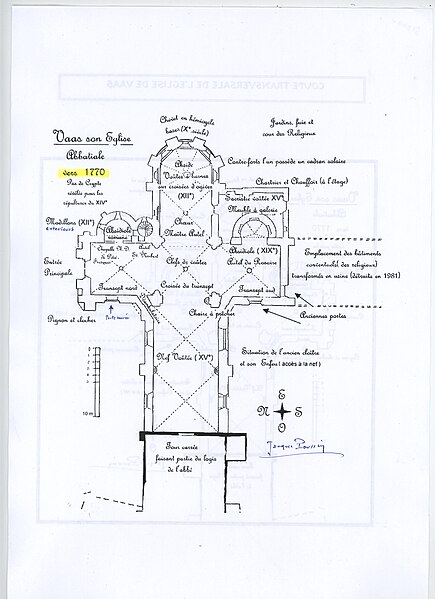 COUPE TRANSVERSALE DE L'EGLISE DE VAAS
Vaas son Eglise
Abbatiale
vers 1770
Pas de Crypte
voûtée pour les
sépultures du XIV°
Chevet en hémicycle
bases (X° siècle)
Jardins, fuie et
cour des Religieux
Abside
Voûtée d'
sur croisées d'ogives
(XII°)
Contreforts l'un possède un cadran solaire
Chartrier et Chauffoir (à l'étage)
Sacristie voûtée XV°
Meuble à galerie
Modillons (XII°)
extérieurs
Absidiole
romane
Chœur
Maître Autel
Chapelle N.D.
de Pitié
Autel
Absidiole (XIX°)
Autel du Rosaire
Entrée
Principale
Clefs de voûtes
Transept nord
Croisée du transept
Transept sud
Emplacement des bâtiments
conventuels (des religieux)
transformés en usine (détruits en 1981)
Pignon et clocher
Chaire à prêcher
Anciennes portes
Nef Voûtée (XV°)
Situation de l'ancien cloître
et son Enfeu (accès à la nef)
10 m
E
N S
O
Tour carrée
faisant partie du logis
de l'abbé
Jacques Poussin